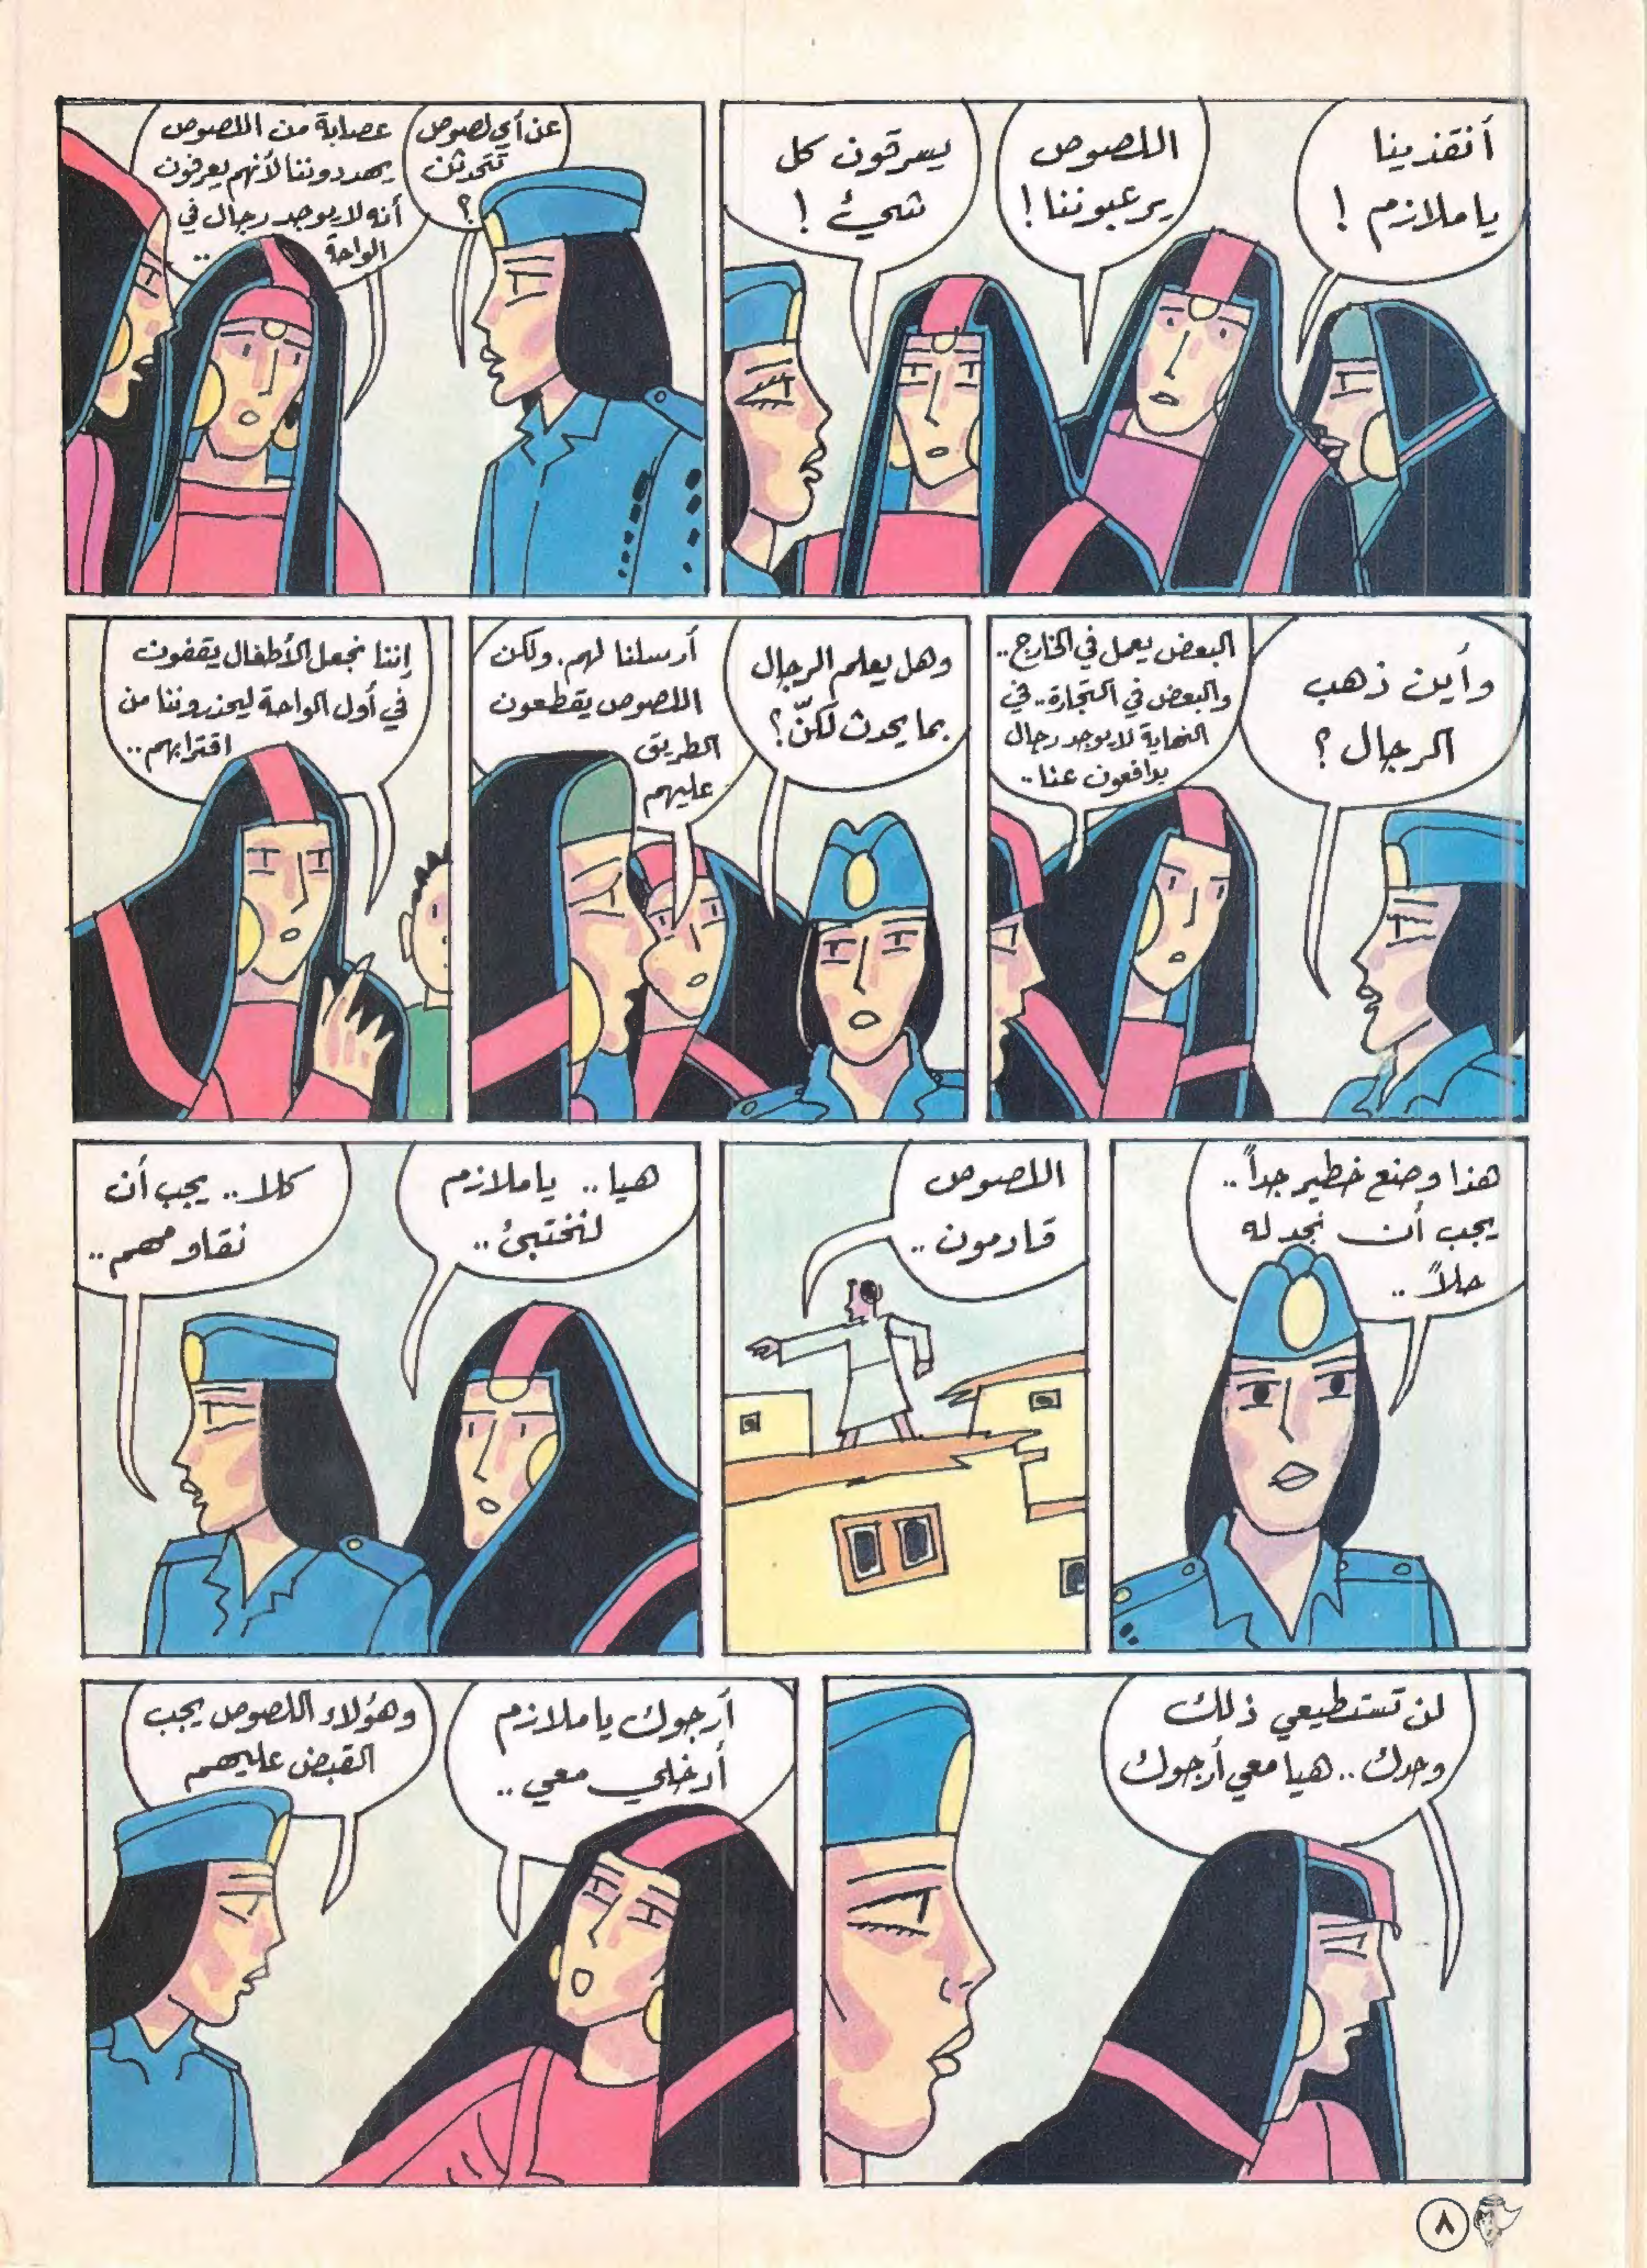 أنقذينا
يا ملازم !
اللصوص
يرعبوننا !
يسرقون كل
شيء !
عن أي لصوص
تتحدثن
؟
عصابة من اللصوص
يهددوننا لأنهم يعرفون
أنه لا يوجد رجال في
الواحة ..
وأين ذهب
الرجال ؟
البعض يعمل في الخارج..
والبعض في التجارة.. في
النهاية لا يوجد رجال
يدافعون عنا..
وهل يعلم الرجال
بما يحدث لكنّ ؟
أرسلنا لهم. ولكن
اللصوص يقطعون
الطريق
عليهم
إننا نجعل الأطفال يقفون
في أول الواحة ليحذروننا من
اقترابهم..
هذا وضع خطير جداً..
يجب أن نجد له
حلاً ..
اللصوص
قادمون ..
هيا.. يا ملازم
لنختبئ..
كلا.. يجب أن
نقاومهم..
لن تستطيعي ذلك
وحدك.. هيا معي أرجوك
أرجوك يا ملازم
أدخلي معي ..
وهؤلاء اللصوص يجب
القبض عليهم
٨